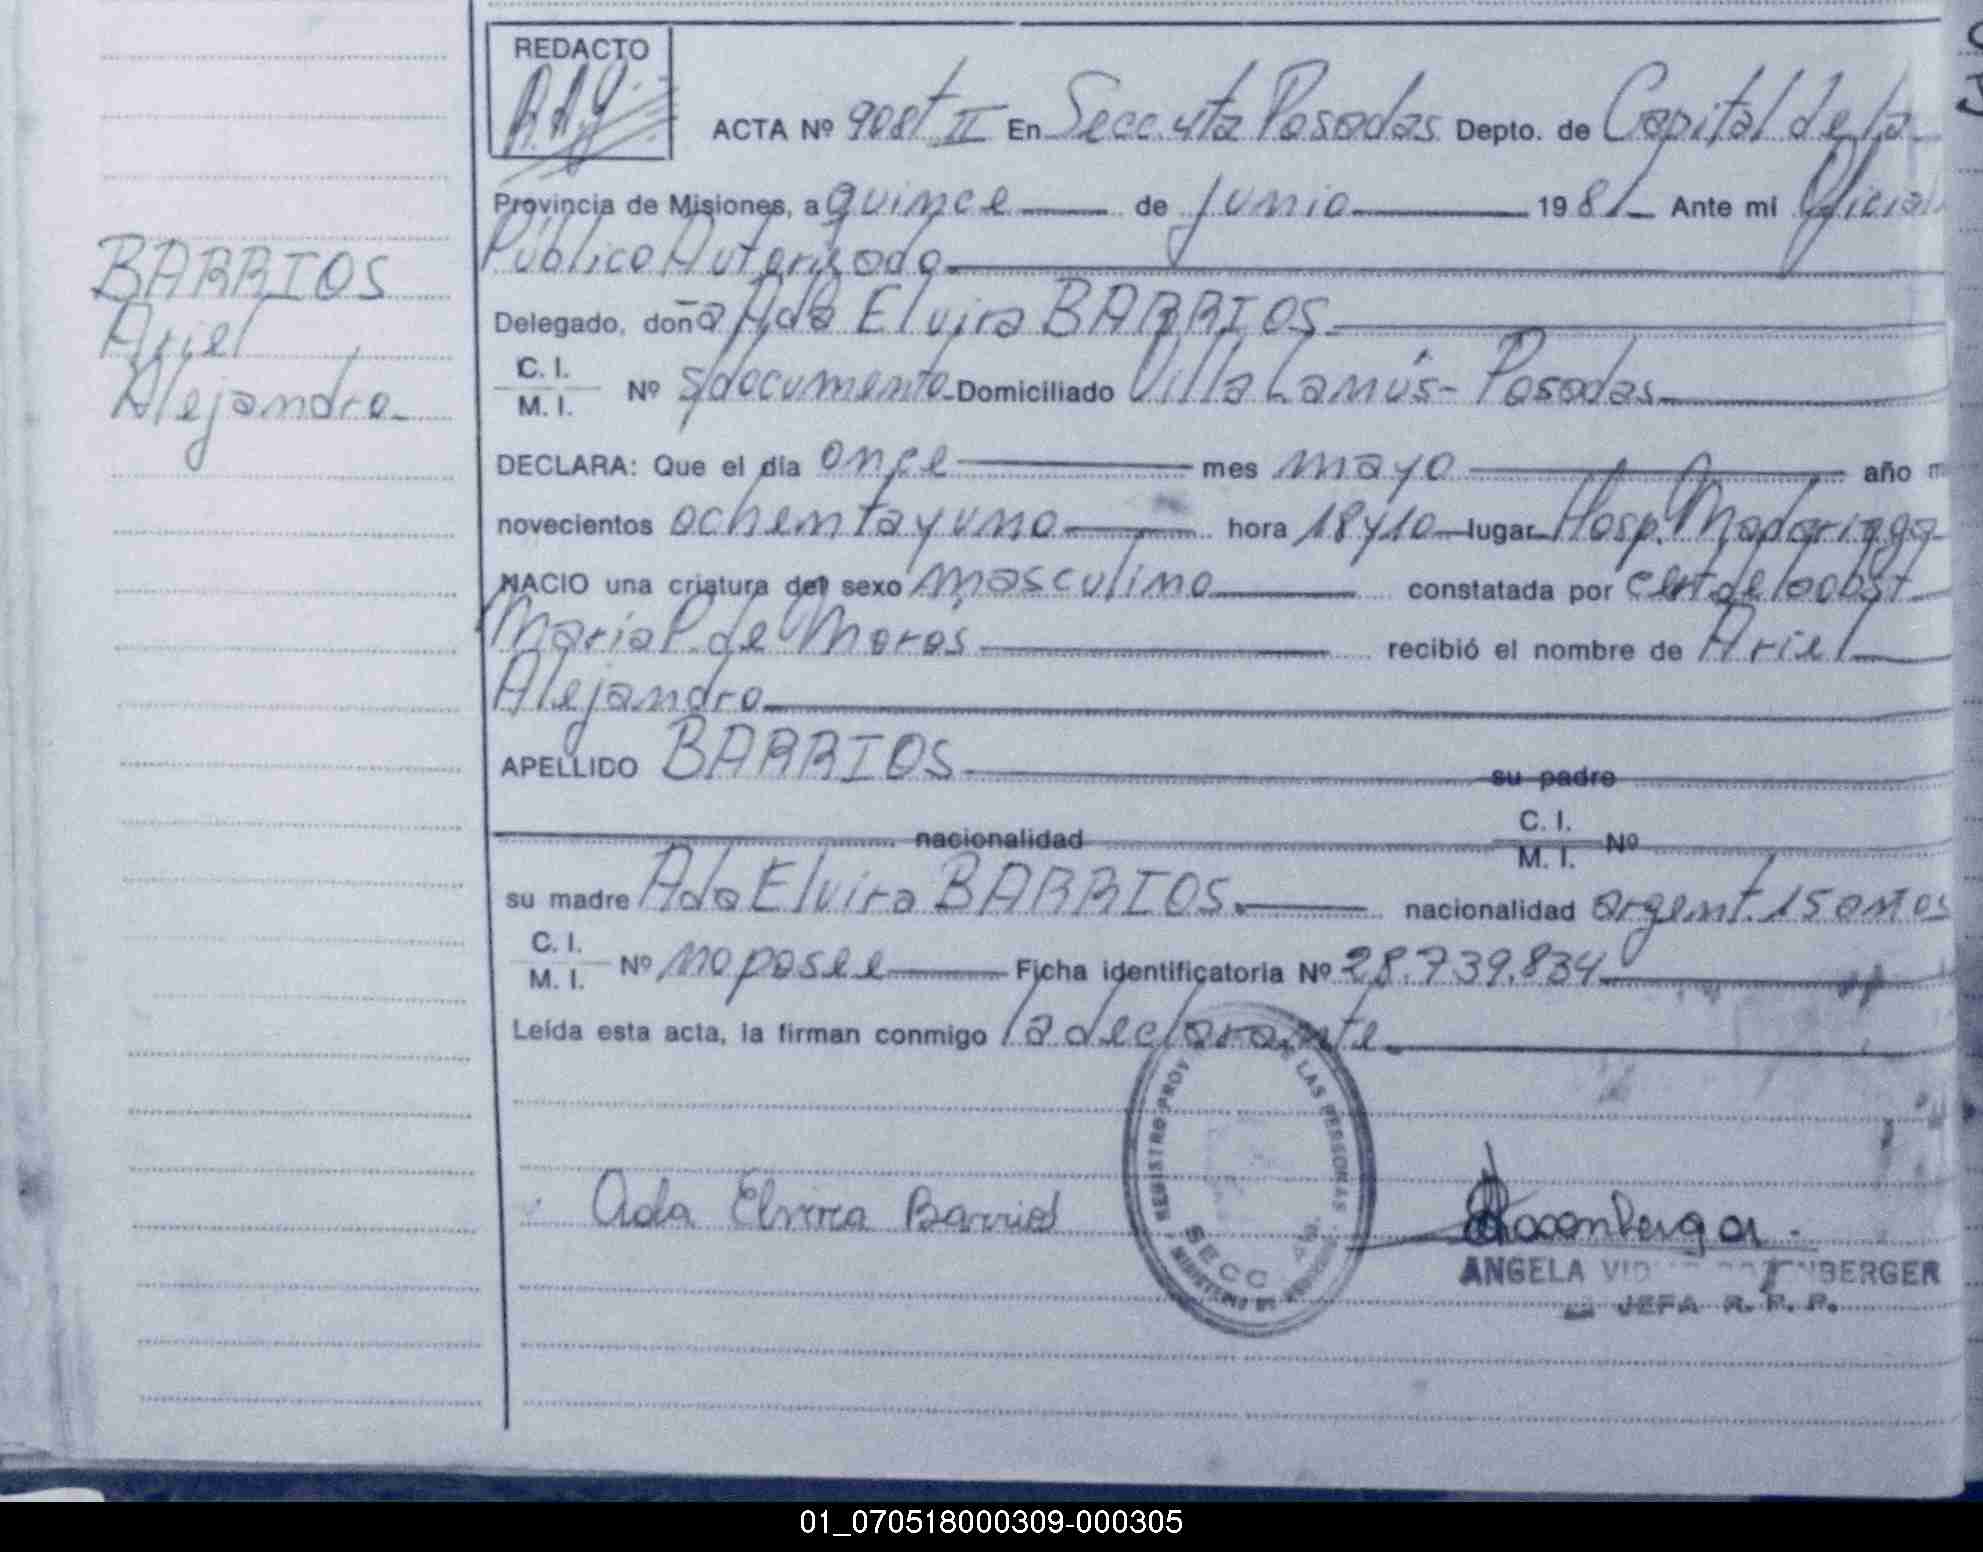 REDACTO
ACTA Nº 908 t II En Secc. 4ta Posadas Depto. de Capital de la
Provincia de Misiones, a quince de junio 1981 Ante mi Oficial
Público Autorizado
BARRIOS
Ariel
Alejandro
Delegado, doña Ada Elvira BARRIOS
C. I.
M. I. Nº s/documento Domiciliado Villa Lanús - Posadas
DECLARA: Que el día once mes mayo año m
novecientos ochenta y uno hora 18 y 10 lugar Hosp. Madariaga
NACIO una criatura del sexo masculino constatada por cert de la obst
María P. de Moros recibió el nombre de Ariel
Alejandro
APELLIDO BARRIOS su padre
nacionalidad C. I. M. I. Nº
su madre Ada Elvira BARRIOS. nacionalidad argent. 15 años
C. I.
M. I. Nº no posee Ficha identificatoria Nº 28.739.834
Leída esta acta, la firman conmigo la declarante.
REGISTRO PROV DE LAS PERSONAS
SECC
Ada Elvira Barrios
ANGELA BERGER
JEFA R. P. P.
01_070518000309-000305